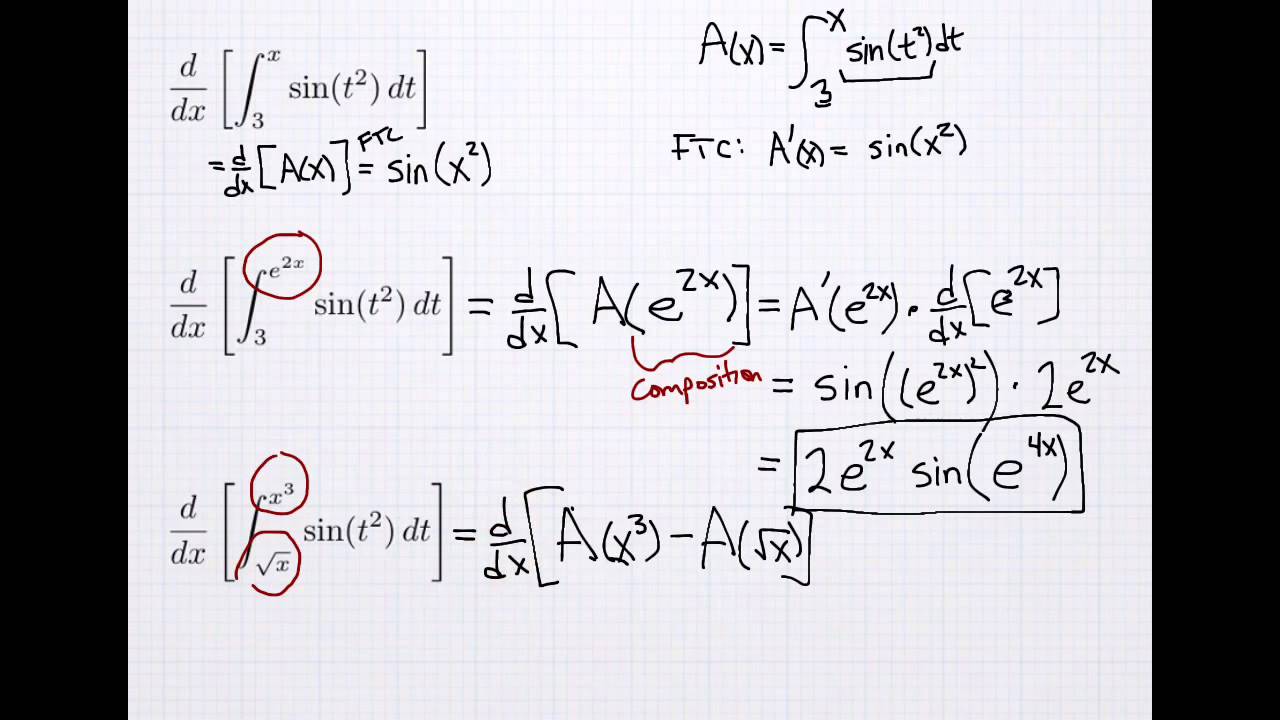 d/dx [∫₃ˣ sin(t²) dt]
A(x) = ∫₃ˣ sin(t²)dt
= d/dx [A(x)] =^FTC sin(x²)
FTC: A'(x) = sin(x²)
d/dx [∫₃^(e^(2x)) sin(t²) dt] = d/dx [A(e^(2x))] = A'(e^(2x)) · d/dx [e^(2x)]
composition
= sin((e^(2x))²) · 2e^(2x)
= 2e^(2x) sin(e^(4x))
d/dx [∫_(√x)^(x³) sin(t²) dt] = d/dx [A(x³) − A(√x)]